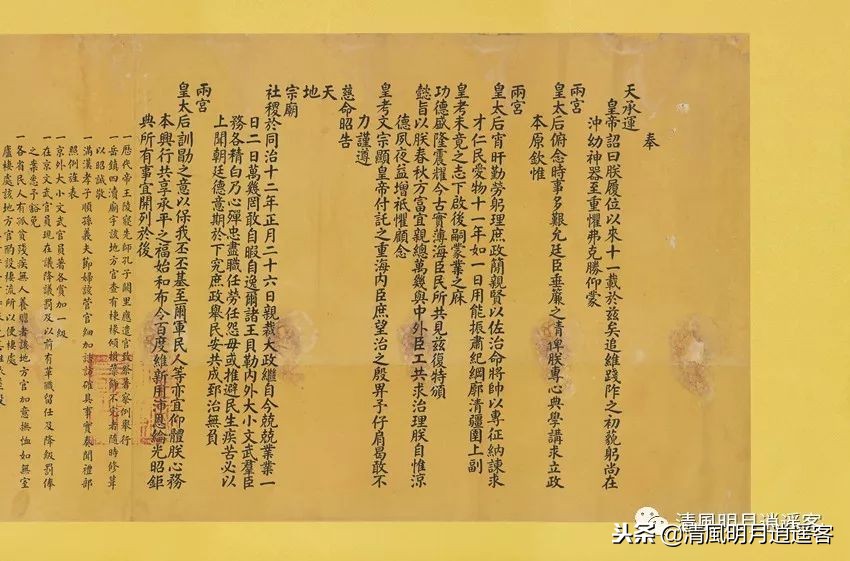 奉
天承運
皇帝詔曰朕履位以來十一載於茲矣追維踐阼之初藐躬尚在
沖幼神器至重懼弗克勝仰蒙
兩宮
皇太后俯念時事多艱允廷臣垂簾之請俾朕專心典學講求立政
本原欽惟
兩宮
皇太后宵旰勤勞躬理庶政簡親賢以佐治命將帥以專征納諫求
才仁民愛物十一年如一日用能振肅紀綱廓清疆圉上副
皇考未竟之志下啟後嗣蒙業之庥
功德盛隆震耀今古實薄海臣民所共見茲復特頒
懿旨以朕春秋方富宜親總萬幾與中外臣工共求治理朕自惟涼
德夙夜益增祗懼顧念
皇考文宗顯皇帝付託之重海內臣庶望治之殷畀予仔肩曷敢不
力謹遵
慈命昭告
天
地
宗廟
社稷於同治十二年正月二十六日親裁大政繼自今兢兢業業一
日二日萬幾罔敢自暇自逸爾諸王貝勒內外大小文武羣臣
務各精白乃心殫忠盡職任勞任怨毋或推避民生疾苦必以
上聞朝廷德意期於下究庶政舉民安共成郅治無負
兩宮
皇太后訓勖之意以保我丕丕基至爾軍民人等亦宜仰體朕心務
本興行共享承平之福始和布令百度維新用沛恩綸光昭鉅
典所有事宜開列於後
一歷代帝王陵寢先師孔子闕里應遣官致祭著察例舉行
一岳鎮四瀆廟宇該地方官查有棟椽傾損者隨時修葺
以昭誠敬
一滿漢孝子順孫義夫節婦該管官細加諮訪確具事實奏聞禮部
照例旌表
一京外大小文武官員著各賞加一級
一在京文武官員現在議降議罰及以前有革職留任及降級罰俸
之案悉予豁免
一各省民人有孤貧殘疾無人養贍者該地方官加意撫恤如無室
廬棲處該地方官酌設棲流所以便棲處
清風明月逍遥客
头条@清風明月逍遥客